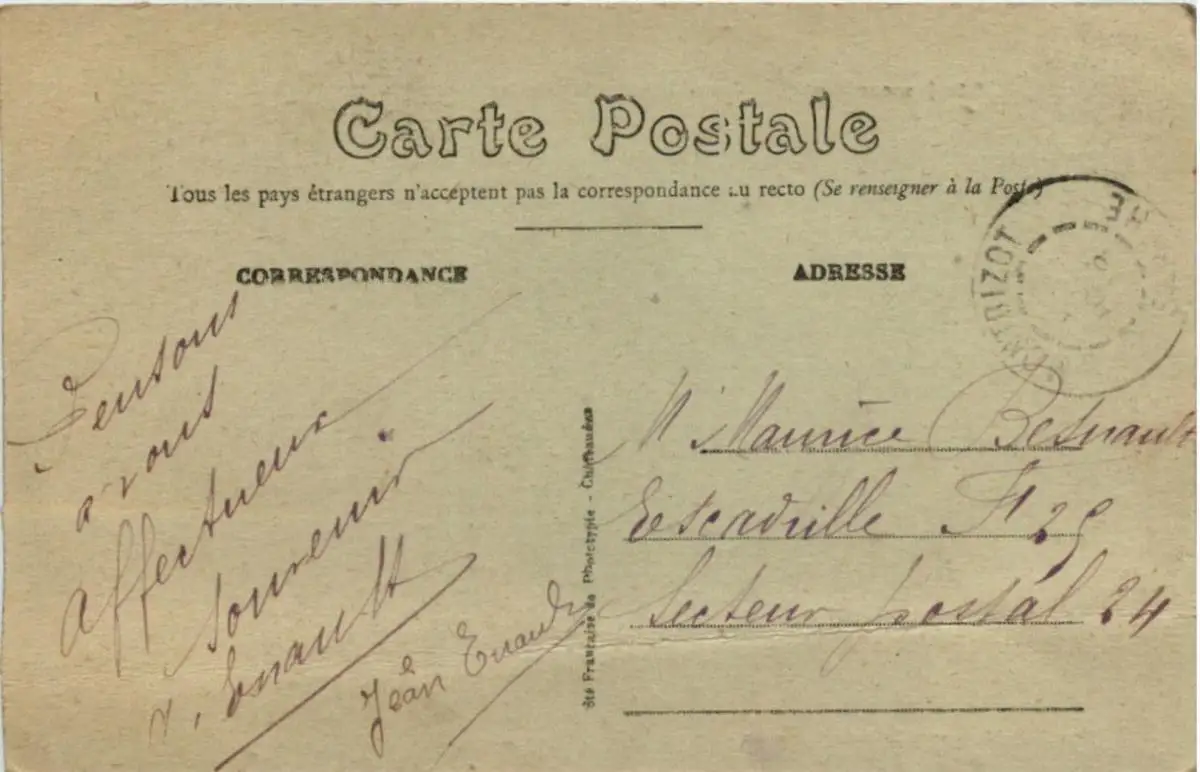 Carte Postale
Tous les pays étrangers n'acceptent pas la correspondance au recto (Se renseigner à la Poste)
CORRESPONDANCE
Pensons
à vous
affectueux
souvenir
Enault
Jean Enault
Sté Française de Phototypie -
ADRESSE
Mr Maurice Besnault
Escadrille F 25
Secteur postal 24